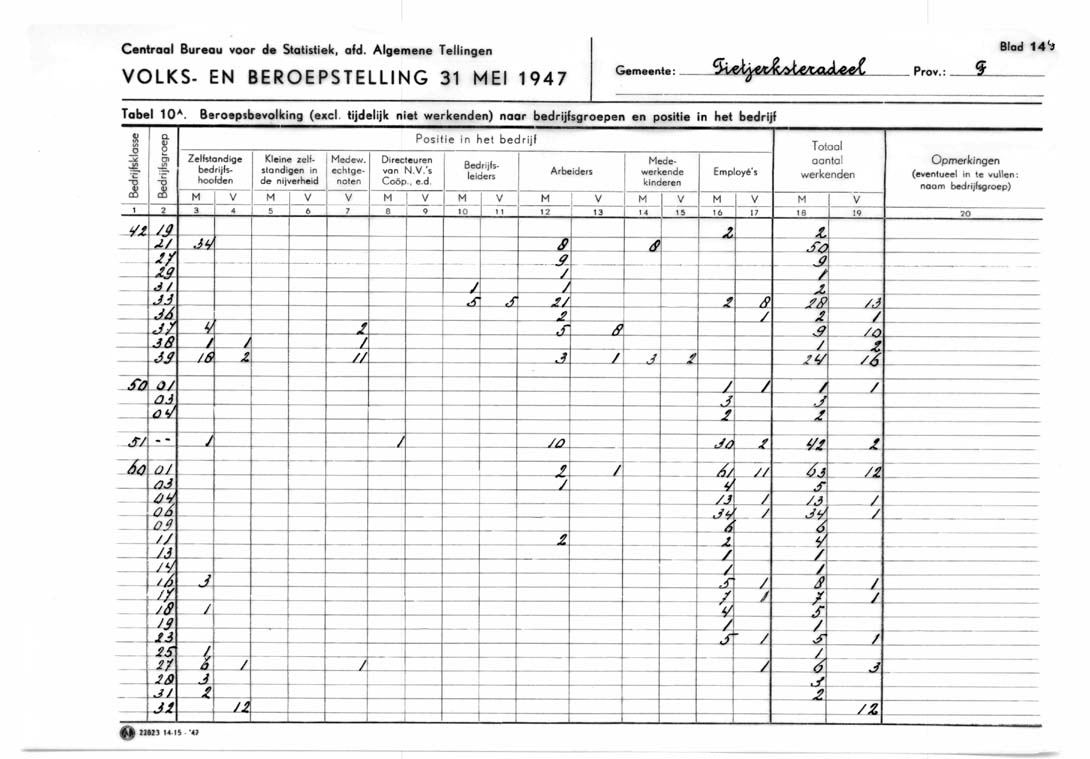 Centraal Bureau voor de Statistiek, afd. Algemene Tellingen
VOLKS- EN BEROEPSTELLING 31 MEI 1947
Gemeente: Tietjerksteradeel Prov.: F
Blad 14b
Tabel 10A. Beroepsbevolking (excl. tijdelijk niet werkenden) naar bedrijfsgroepen en positie in het bedrijf
Bedrijfsklasse
Bedrijfsgroep
Positie in het bedrijf
Zelfstandige bedrijfs-hoofden
Kleine zelf-standigen in de nijverheid
Medew. echtge-noten
Directeuren van N.V.'s Coöp., e.d.
Bedrijfs-leiders
Arbeiders
Mede-werkende kinderen
Employé's
Totaal aantal werkenden
Opmerkingen (eventueel in te vullen: naam bedrijfsgroep)
M V M V V M V M V M V M V M V M V
1 2 3 4 5 6 7 8 9 10 11 12 13 14 15 16 17 18 19 20
42 19 2 2
21 34 8 8 50
27 9 9
29 1 1
31 1 1 2
33 5 5 21 2 8 28 13
36 2 1 2 1
37 4 2 5 8 9 10
38 1 1 1 1 2
39 18 2 11 3 1 3 2 24 16
50 01 1 1 1 1
03 3 3
04 2 2
51 -- 1 1 10 30 2 42 2
60 01 2 1 61 11 63 12
03 1 4 5
04 13 1 13 1
06 34 1 34 1
09 6 6
11 2 2 4
13 1 1
14 1 1
16 3 5 1 8 1
17 7 1 7 1
18 1 4 5
19 1 1
23 5 1 5 1
25 1 1
27 6 1 1 1 6 3
28 3 3
31 2 2
32 12 12
22823 14-15 - '47